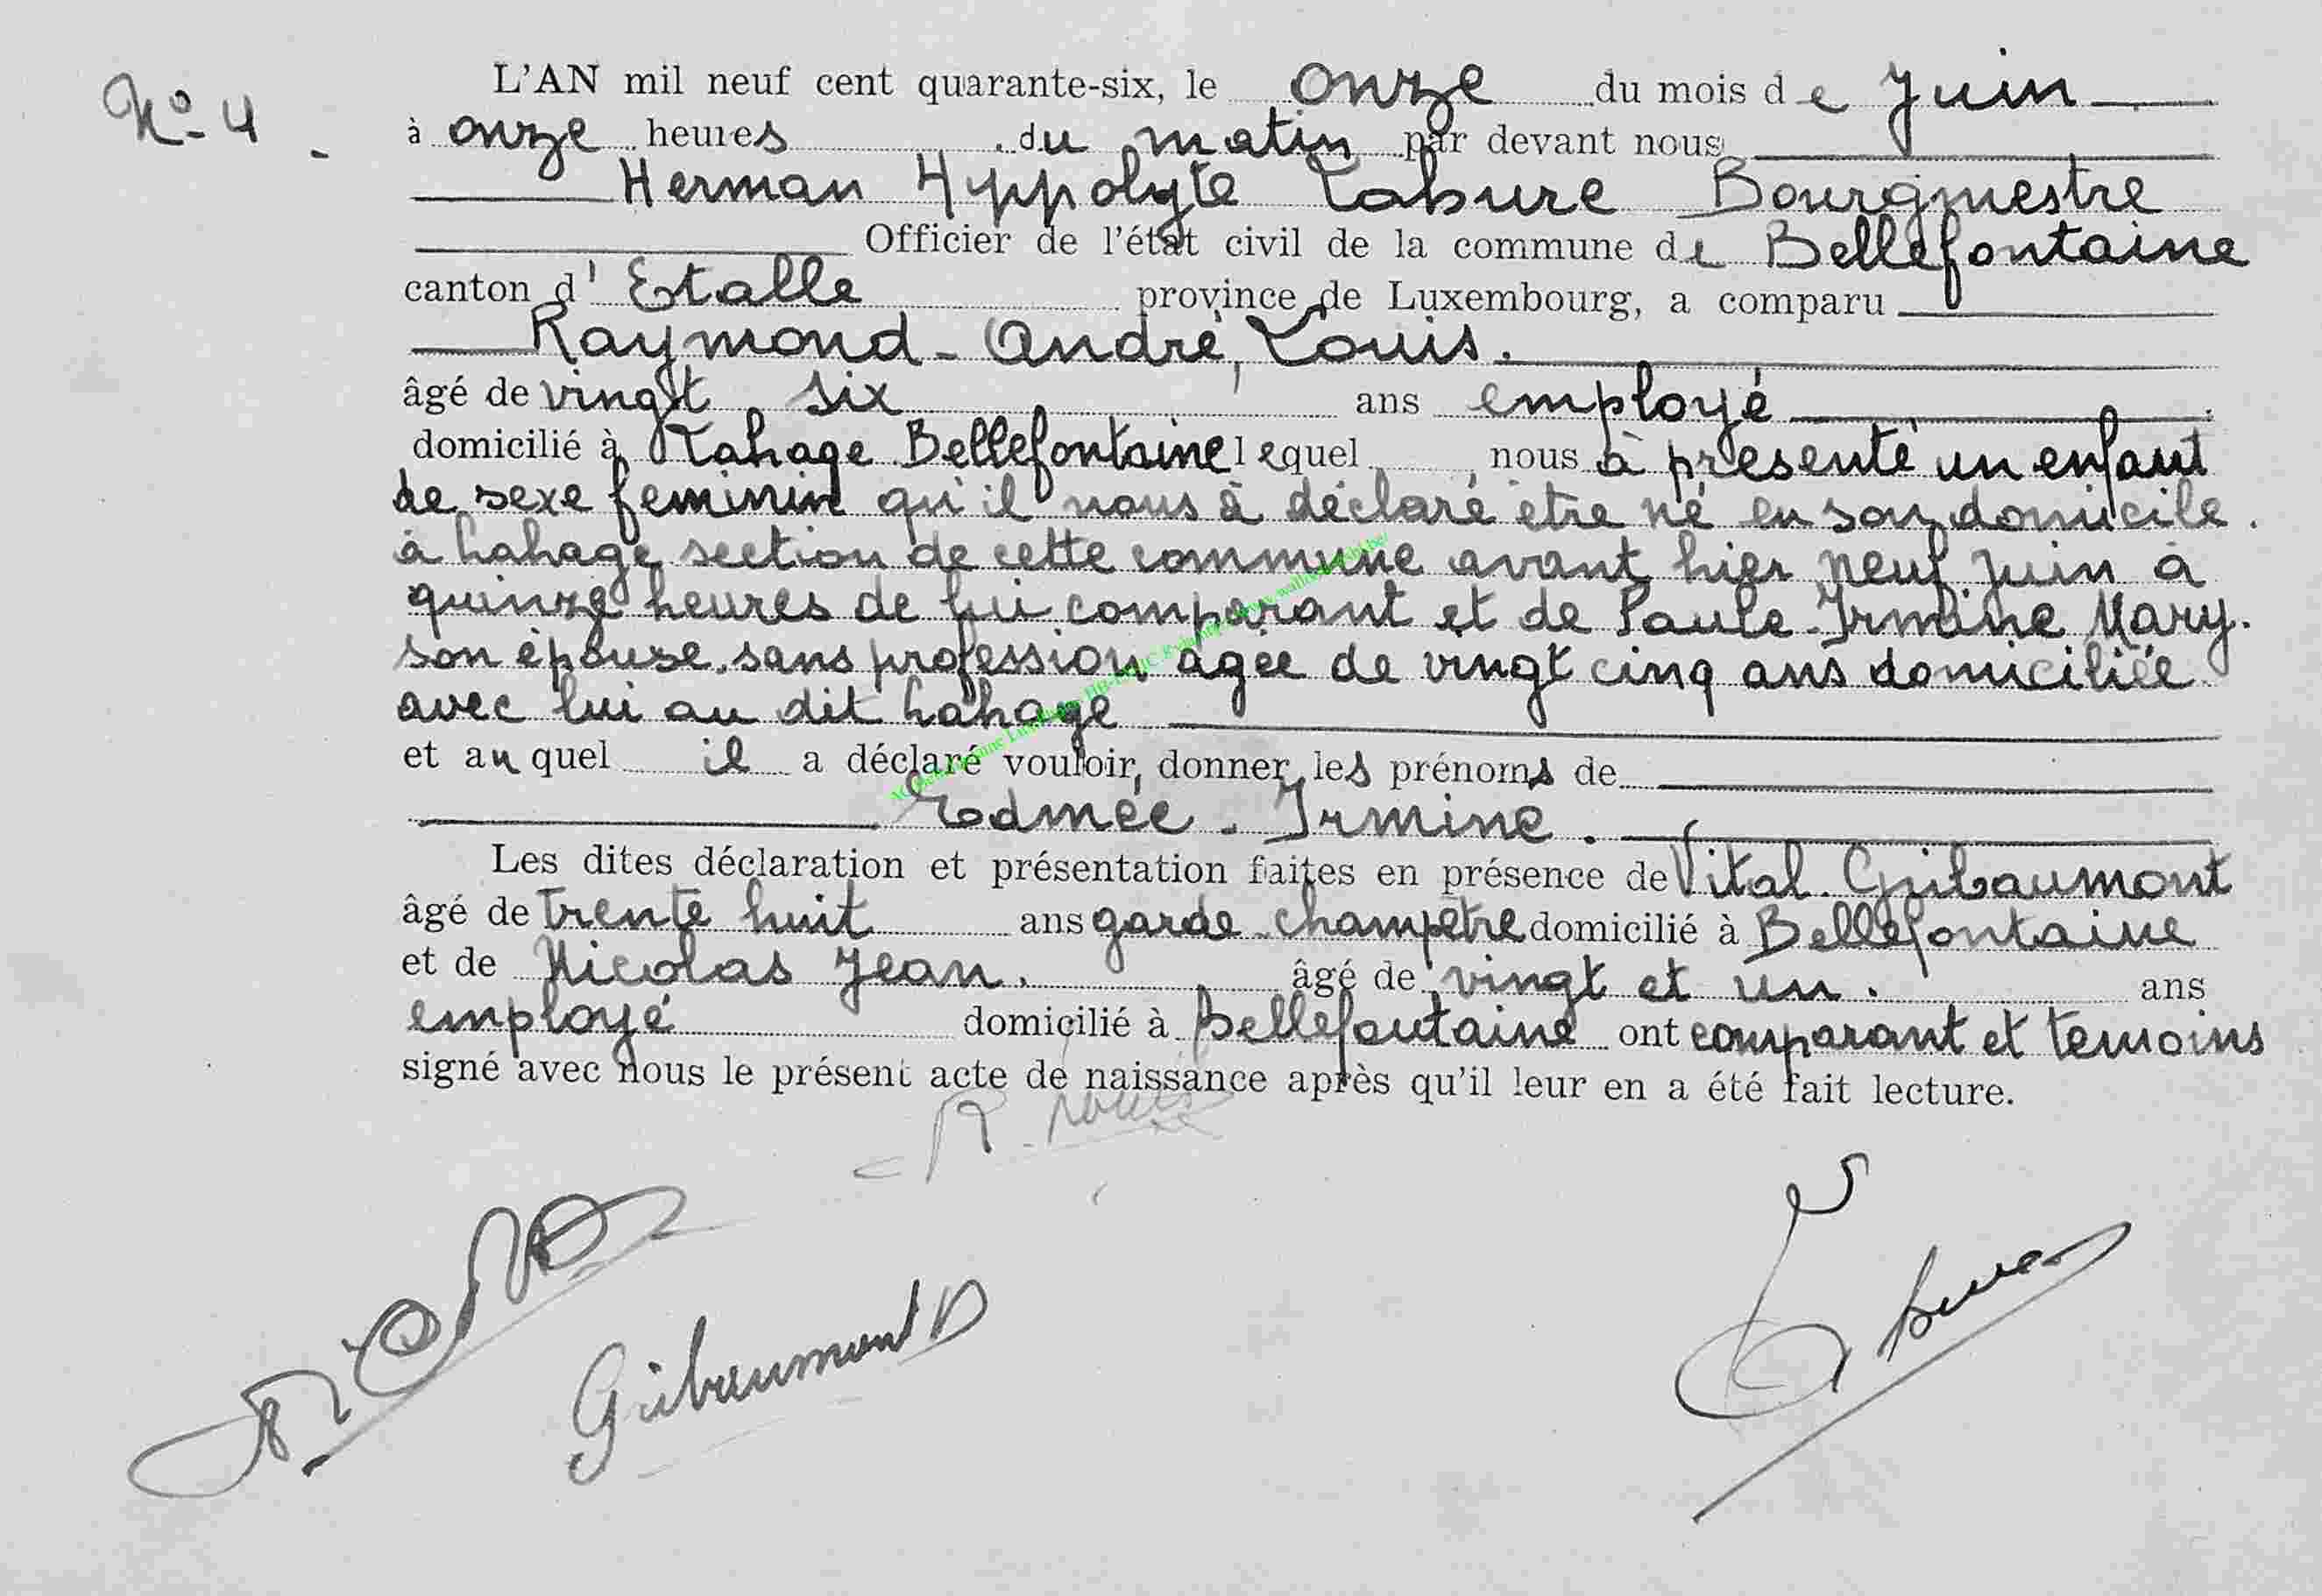 N° 4 -
L'AN mil neuf cent quarante-six, le onze du mois de Juin
à onze heures du matin par devant nous
Herman Hyppolyte Labure Bourgmestre
Officier de l'état civil de la commune de Bellefontaine
canton d' Etalle province de Luxembourg, a comparu
Raymond - André, Louis.
âgé de vingt six ans employé
domicilié à Lahage Bellefontaine lequel nous à présenté un enfant
de sexe feminin qu'il nous à déclaré être né en son domicile.
à Lahage section de cette commune avant hier neuf juin à
quinze heures de lui comparant et de Paule-Irmine Mary.
son épouse, sans profession agée de vingt cinq ans domiciliée
avec lui au dit Lahage
et auquel il a déclaré vouloir donner les prénoms de
Edmée - Irmine.
Les dites déclaration et présentation faites en présence de Vital Gribaumont
âgé de trente huit ans garde champêtre domicilié à Bellefontaine
et de Nicolas Jean. âgé de vingt et un. ans
employé domicilié à Bellefontaine ont comparant et temoins
signé avec nous le présent acte de naissance après qu'il leur en a été fait lecture.
R. Louis
Gribaumont V
Labure